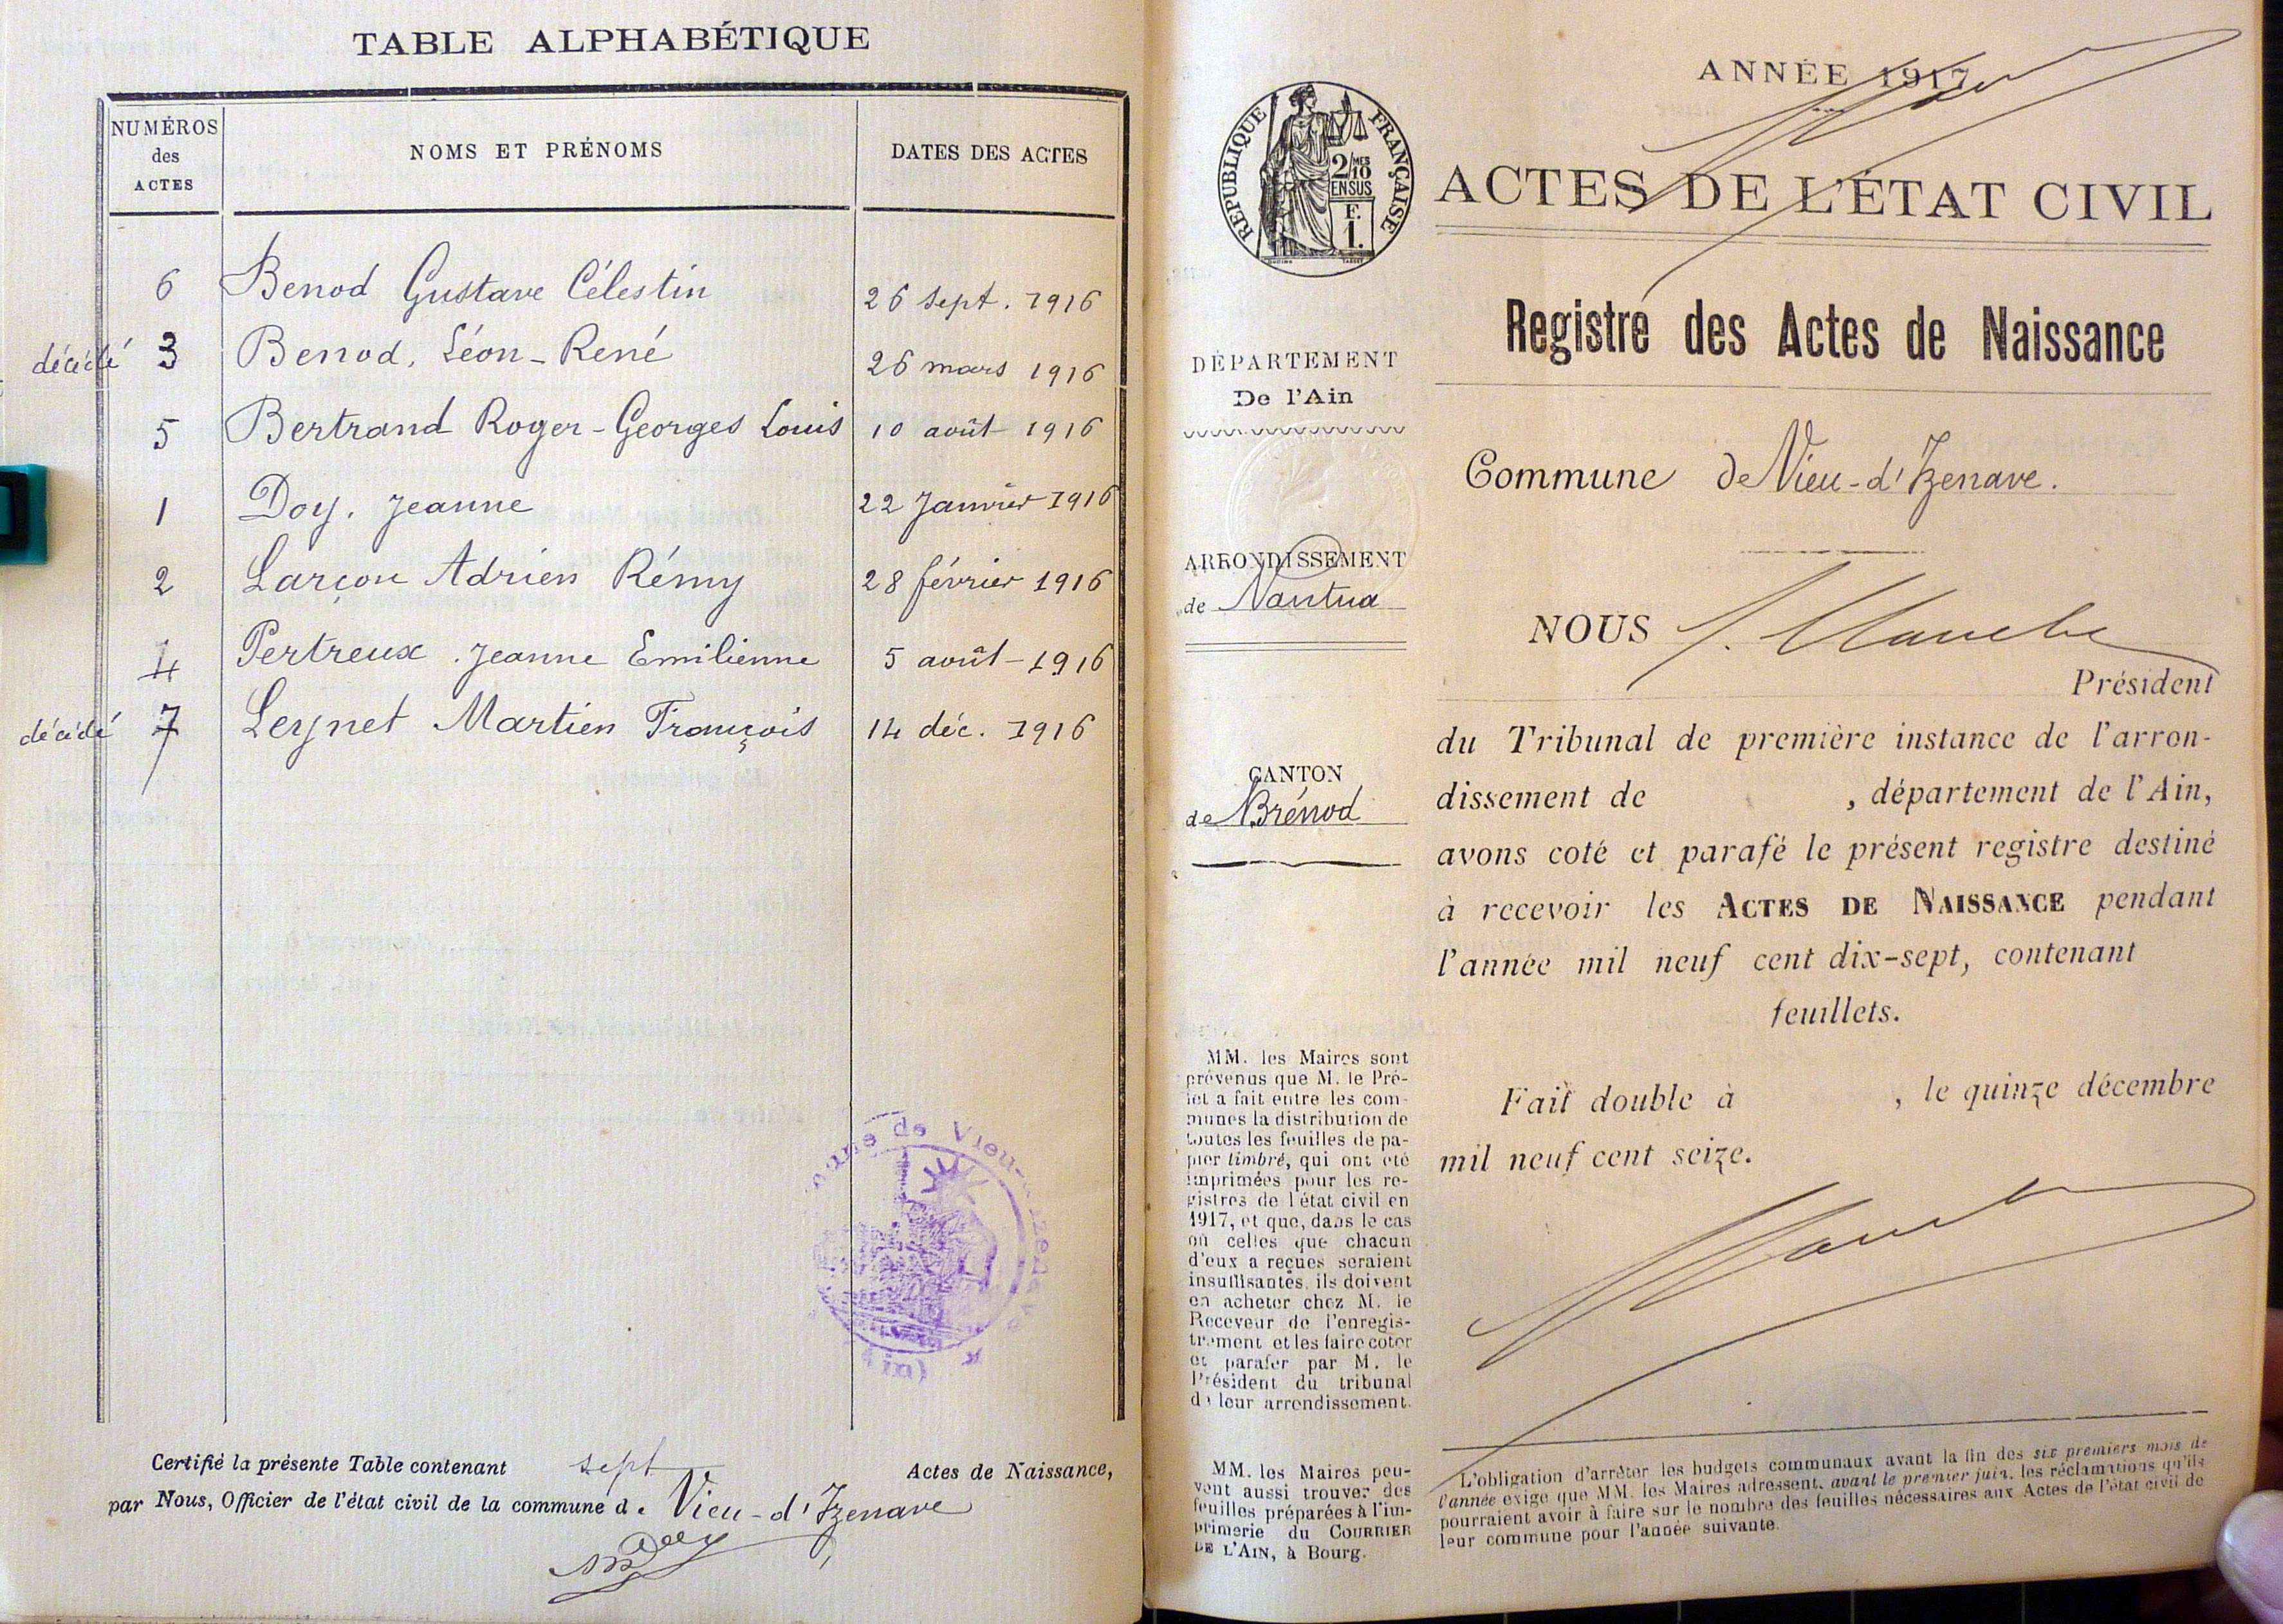 TABLE ALPHABÉTIQUE
NUMÉROS
des
ACTES
NOMS ET PRÉNOMS
DATES DES ACTES
6 Benod Gustave Célestin 26 sept. 1916
décédé 3 Benod, Léon-René 26 mars 1916
5 Bertrand Roger-Georges Louis 10 août 1916
1 Doy. Jeanne 22 Janvier 1916
2 Larçon Adrien Rémy 28 février 1916
4 Pertreux. Jeanne Emilienne 5 août-1916
décédé 7 Leynet Martien François 14 déc. 1916
Commune de Vieu-d'Izenave
(Ain)
Certifié la présente Table contenant sept Actes de Naissance,
par Nous, Officier de l'état civil de la commune de Vieu-d'Izenave
RÉPUBLIQUE FRANÇAISE
2/10 MES
EN SUS
F.
1.
DÉPARTEMENT
De l'Ain
ARRONDISSEMENT
de Nantua
CANTON
de Brénod
MM. les Maires sont
prévenus que M. le Pré-
fet a fait entre les com-
munes la distribution de
toutes les feuilles de pa-
pier timbré, qui ont été
imprimées pour les re-
gistres de l'état civil en
1917, et que, dans le cas
où celles que chacun
d'eux a reçues seraient
insuffisantes, ils doivent
en acheter chez M. le
Receveur de l'enregis-
trement et les faire coter
et parafer par M. le
Président du tribunal
de leur arrondissement.
MM. les Maires peu-
vent aussi trouver des
feuilles préparées à l'im-
primerie du COURRIER
DE L'AIN, à Bourg.
ANNÉE 1917
ACTES DE L'ÉTAT CIVIL
Registre des Actes de Naissance
Commune de Vieu-d'Izenave.
NOUS
Président
du Tribunal de première instance de l'arron-
dissement de , département de l'Ain,
avons coté et parafé le présent registre destiné
à recevoir les ACTES DE NAISSANCE pendant
l'année mil neuf cent dix-sept, contenant
feuillets.
Fait double à , le quinze décembre
mil neuf cent seize.
L'obligation d'arrêter les budgets communaux avant la fin des six premiers mois de
l'année exige que MM. les Maires adressent, avant le premier juin, les réclamations qu'ils
pourraient avoir à faire sur le nombre des feuilles nécessaires aux Actes de l'état civil de
leur commune pour l'année suivante.